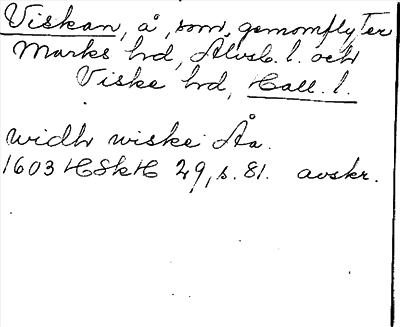 Viskan, å, som genomflyter
Marks hd, Älvsb. l. och
Viske hd, Hall. l.
widh wiske Åa.
1603 HSkH 29, s. 81. avskr.